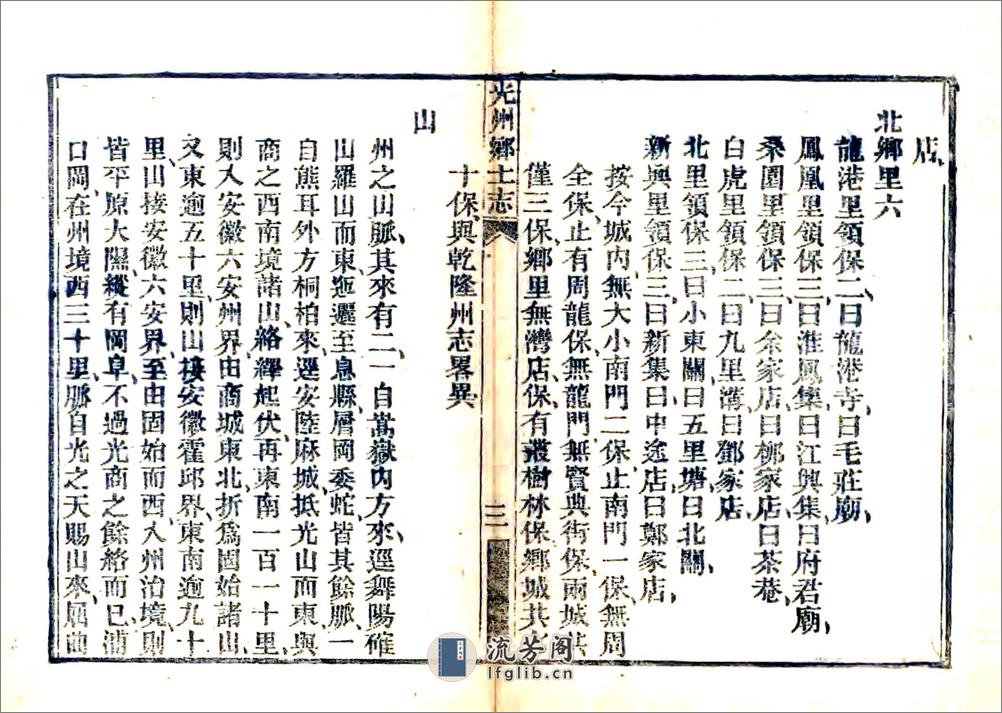 店
北鄉里六
龍港里領保二曰龍港寺曰毛莊廟
鳳凰里領保三曰淮鳳集曰江興集曰府君廟
桑園里領保三曰余家店曰柳家店曰茶菴
白虎里領保二曰九里溝曰鄧家店
北里領保三曰小東關曰五里塘曰北關
新興里領保三曰新集曰中途店曰鄭家店
按今城內無大小南門二保止南門一保無周
全保止有周龍保無龍門無賢典街保兩城共
僅三保鄉里無灣店保有叢樹林保鄉城共
光州鄉土志
三
十保與乾隆州志畧異
山
州之山脈其來有二一自嵩嶽內方來逕舞陽確
山羅山而東迤邐至息縣層岡委蛇皆其餘脈一
自熊耳外方桐柏來逕安陸麻城抵光山而東與
商之西南境諸山絡繹起伏再東南一百一十里
則入安徽六安州界由商城東北折爲固始諸山
又東逾五十里則山接安徽霍邱界東南逾九十
里山接安徽六安界至由固始而西入州治境則
皆平原大隰縱有岡阜不過光商之餘絡而已浦
口岡在州境西三十里脈自光之天賜山來屈曲
流芳阁
lfglib.cn